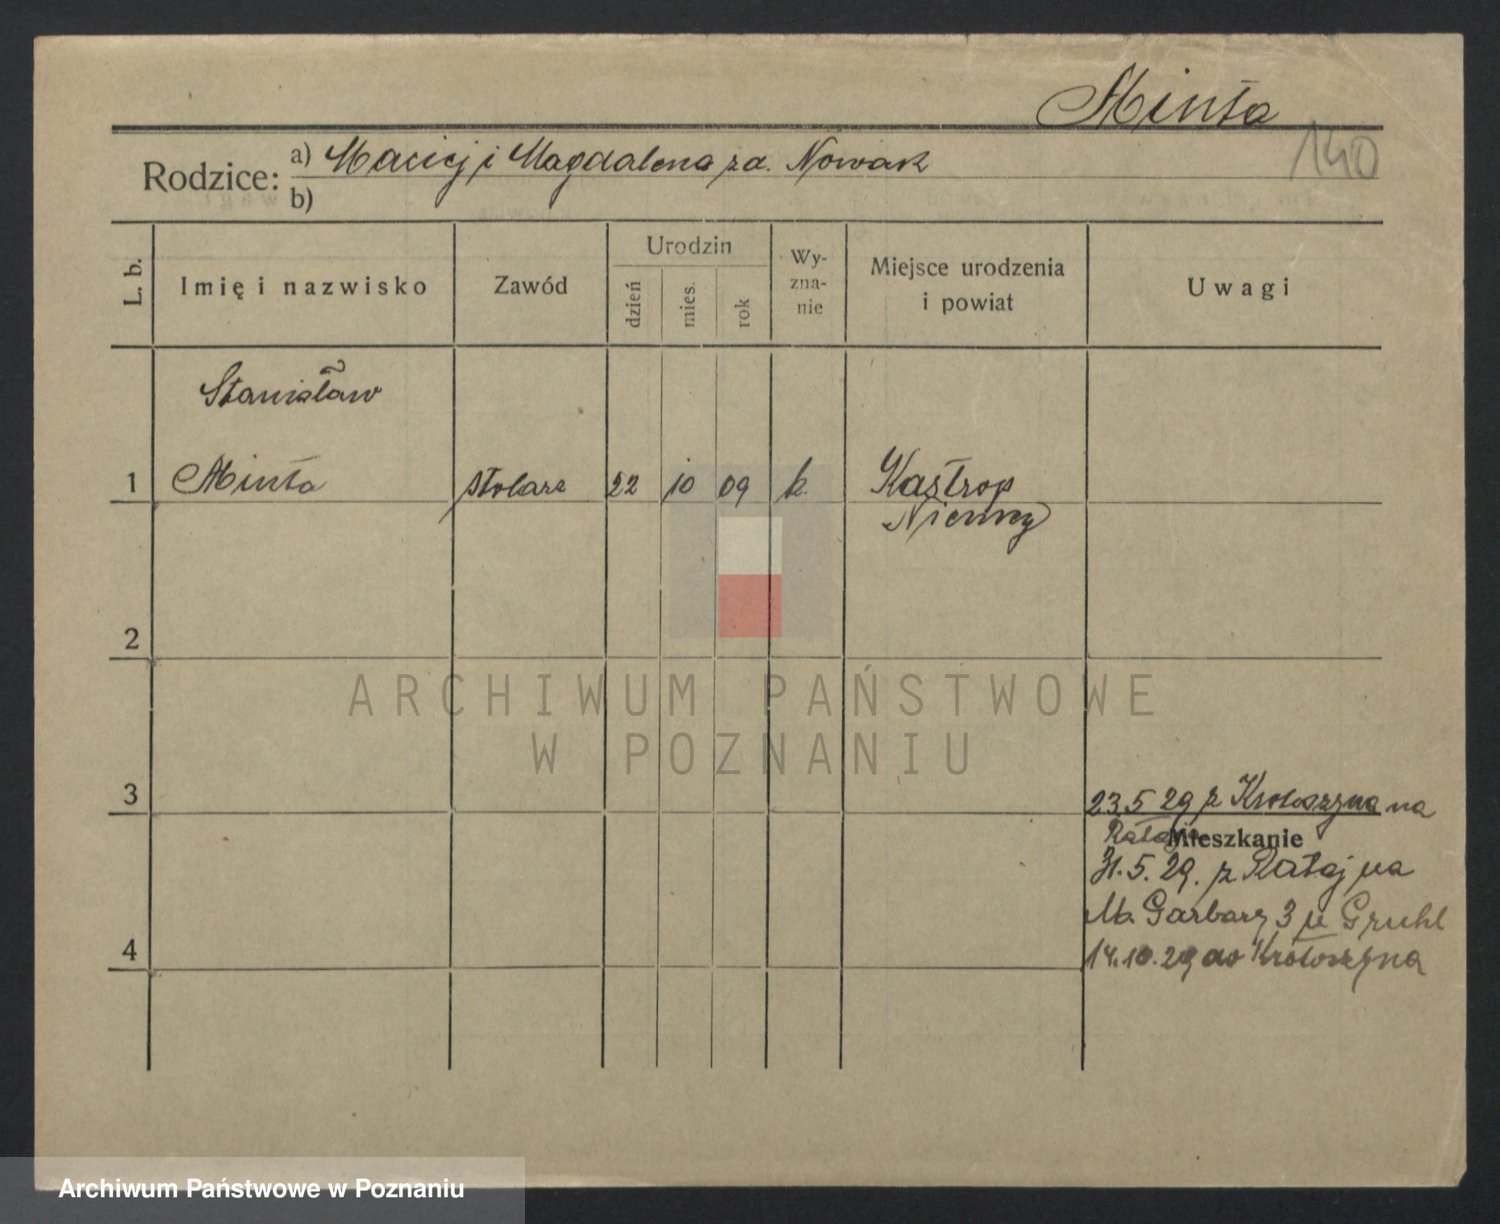 Minta
140
Rodzice: a) Maciej i Magdalena za. Nowak
b)
L. b.
Imię i nazwisko
Zawód
Urodzin
dzień
mies.
rok
Wy-
zna-
nie
Miejsce urodzenia
i powiat
Uwagi
Stanisław
1 Minta stolarz 22 10 09 k. Kastrop
Niemcy
2
ARCHIWUM PAŃSTWOWE
W POZNANIU
3
23.5 29 z Krotoszyna na
Mieszkanie
31.5.29. z Rataj na
M. Garbary 3 u Gruhl
4
14.10.29 do Krotoszyna
Archiwum Państwowe w Poznaniu